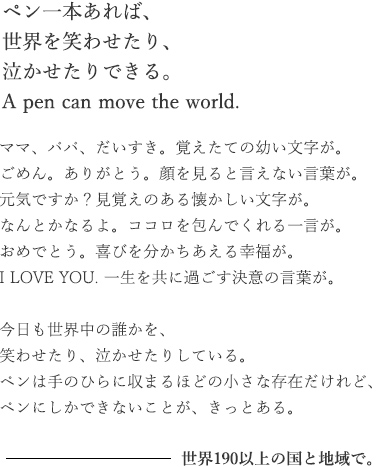 ペン一本あれば、
世界を笑わせたり、
泣かせたりできる。
A pen can move the world.
ママ、パパ、だいすき。覚えたての幼い文字が。
ごめん。ありがとう。顔を見ると言えない言葉が。
元気ですか？見覚えのある懐かしい文字が。
なんとかなるよ。ココロを包んでくれる一言が。
おめでとう。喜びを分かちあえる幸福が。
I LOVE YOU. 一生を共に過ごす決意の言葉が。
今日も世界中の誰かを、
笑わせたり、泣かせたりしている。
ペンは手のひらに収まるほどの小さな存在だけれど、
ペンにしかできないことが、きっとある。
世界190以上の国と地域で。